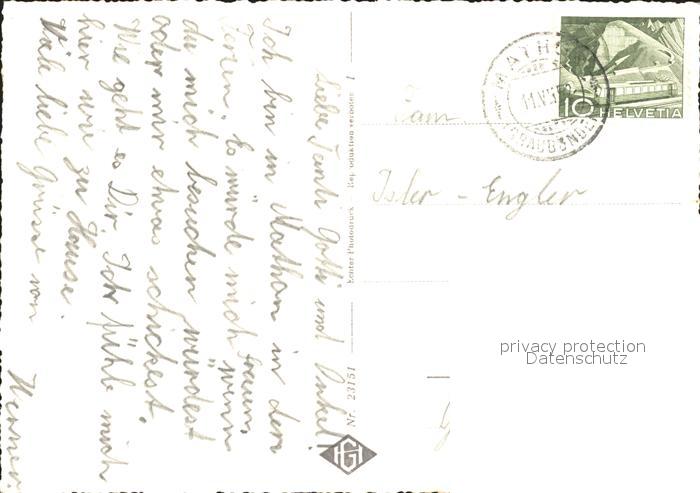 Liebe Tante Gotte und Onkel!
Ich bin in Mathon in den
Ferien. Es würde mich freuen, wenn
du mich besuchen würdest
oder mir etwas schickest.
Wie geht es Dir. Ich fühle mich
hier wie zu Hause.
Viele liebe Grüsse von
Werner.
Nr. 23151
Reproduktion verboten
HGI
MATHON
(GRAUBÜNDEN)
10 HELVETIA
Fam
Isler - Engler
privacy protection
Datenschutz